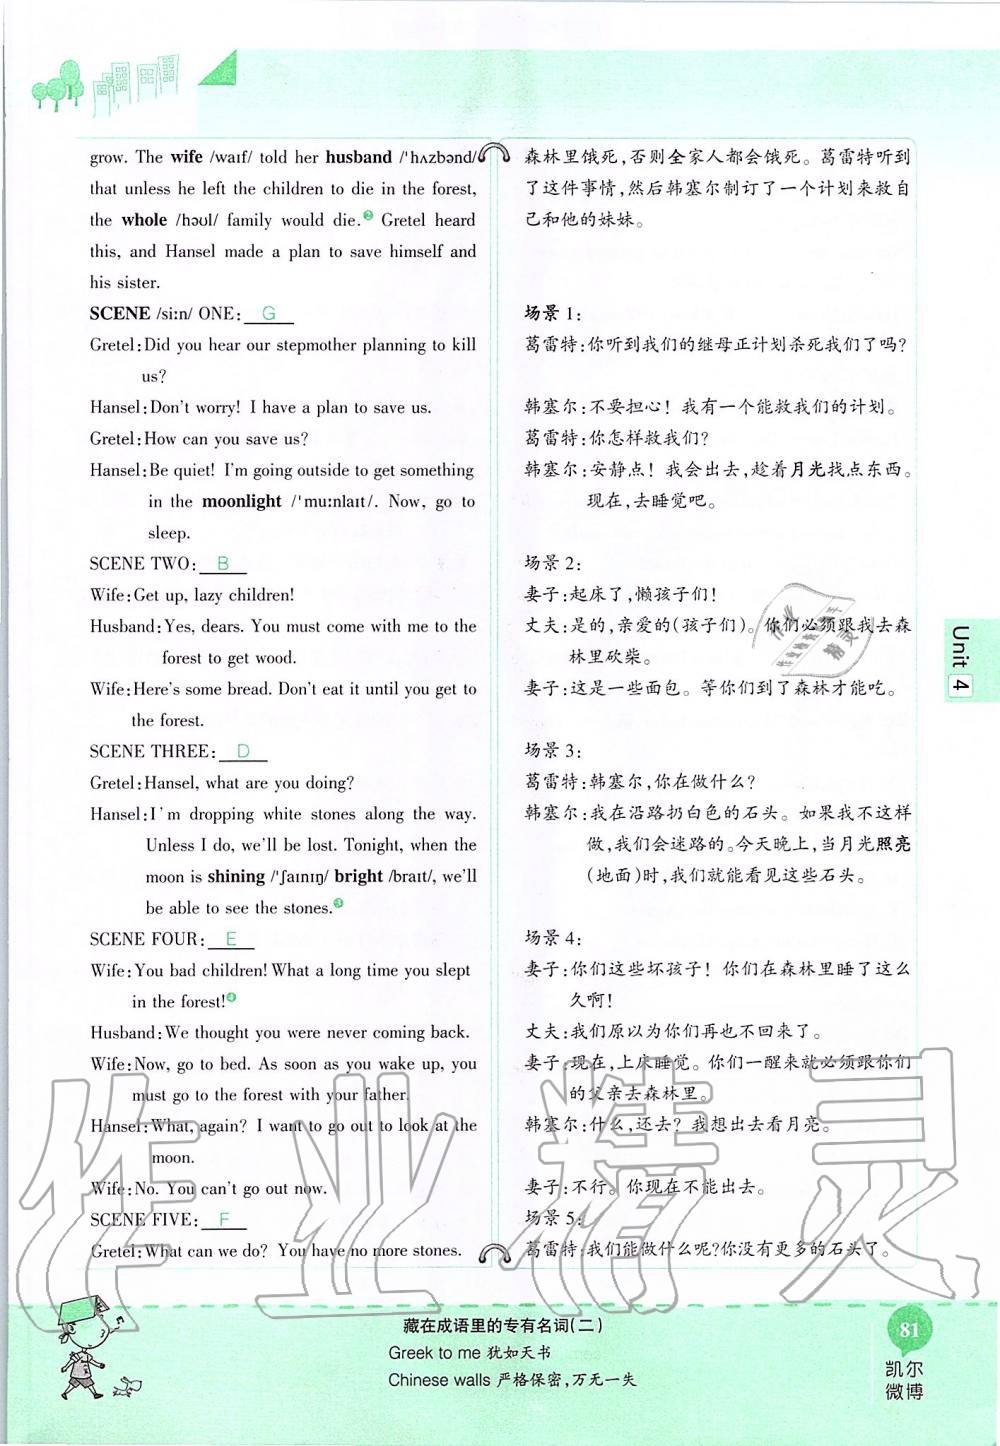 grow. The wife /waɪf/ told her husband /ˈhʌzbənd/
that unless he left the children to die in the forest,
the whole /həʊl/ family would die.❷ Gretel heard
this, and Hansel made a plan to save himself and
his sister.
SCENE /siːn/ ONE: G
Gretel:Did you hear our stepmother planning to kill
us?
Hansel:Don't worry! I have a plan to save us.
Gretel:How can you save us?
Hansel:Be quiet! I'm going outside to get something
in the moonlight /ˈmuːnlaɪt/. Now, go to
sleep.
SCENE TWO: B
Wife:Get up, lazy children!
Husband:Yes, dears. You must come with me to the
forest to get wood.
Wife:Here's some bread. Don't eat it until you get to
the forest.
SCENE THREE: D
Gretel:Hansel, what are you doing?
Hansel:I'm dropping white stones along the way.
Unless I do, we'll be lost. Tonight, when the
moon is shining /ˈʃaɪnɪŋ/ bright /braɪt/, we'll
be able to see the stones.❸
SCENE FOUR: E
Wife:You bad children! What a long time you slept
in the forest!❹
Husband:We thought you were never coming back.
Wife:Now, go to bed. As soon as you wake up, you
must go to the forest with your father.
Hansel:What, again? I want to go out to look at the
moon.
Wife:No. You can't go out now.
SCENE FIVE: F
Gretel:What can we do? You have no more stones.
森林里饿死,否则全家人都会饿死。葛雷特听到
了这件事情,然后韩塞尔制订了一个计划来救自
己和他的妹妹。
场景 1:
葛雷特:你听到我们的继母正计划杀死我们了吗?
韩塞尔:不要担心! 我有一个能救我们的计划。
葛雷特:你怎样救我们?
韩塞尔:安静点! 我会出去,趁着月光找点东西。
现在,去睡觉吧。
场景 2:
妻子:起床了,懒孩子们!
丈夫:是的,亲爱的(孩子们)。你们必须跟我去森
林里砍柴。
妻子:这是一些面包。等你们到了森林才能吃。
场景 3:
葛雷特:韩塞尔,你在做什么?
韩塞尔:我在沿路扔白色的石头。如果我不这样
做,我们会迷路的。今天晚上,当月光照亮
(地面)时,我们就能看见这些石头。
场景 4:
妻子:你们这些坏孩子! 你们在森林里睡了这么
久啊!
丈夫:我们原以为你们再也不回来了。
妻子:现在,上床睡觉。你们一醒来就必须跟你们
的父亲去森林里。
韩塞尔:什么,还去? 我想出去看月亮。
妻子:不行。你现在不能出去。
场景 5:
葛雷特:我们能做什么呢?你没有更多的石头了。
Unit 4
作业精灵
藏在成语里的专有名词(二)
Greek to me 犹如天书
Chinese walls 严格保密,万无一失
81
凯尔
微博